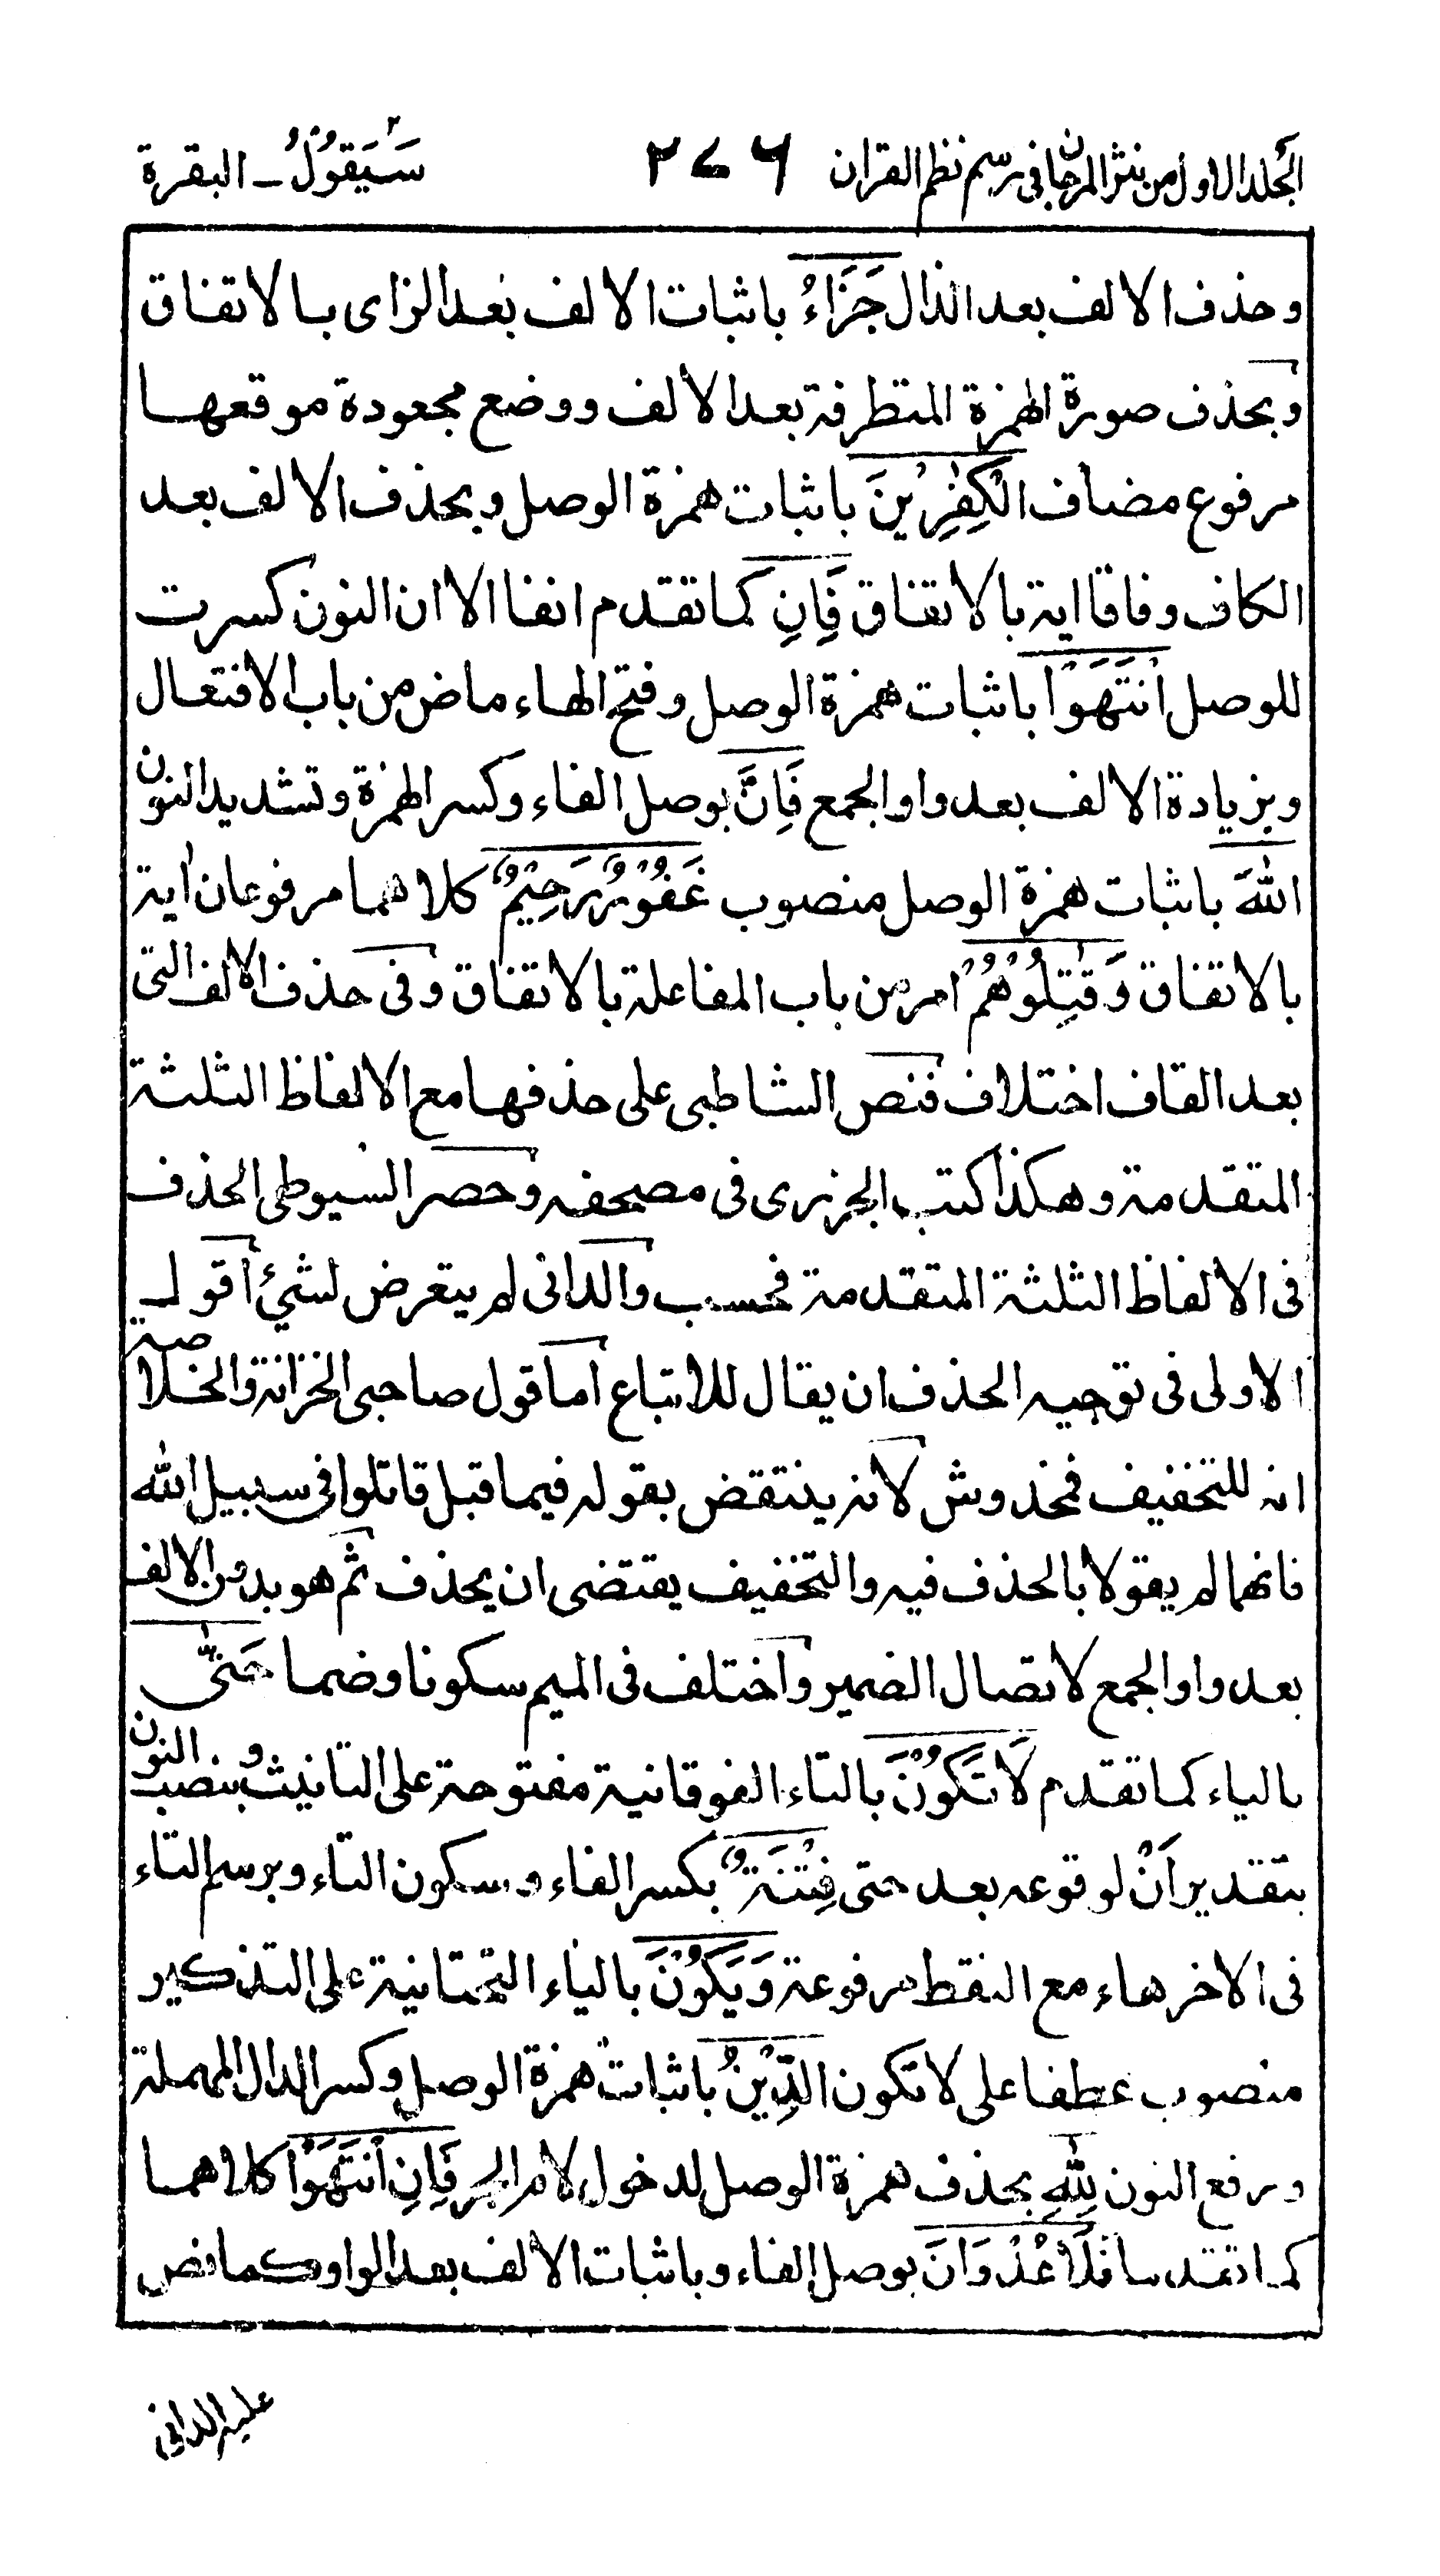 الجلد الاول من نثر المرجان فى رسم نظم القران ٢٧٦ سَيَقُوْلُ ـ البقرة ٢
وحذف الالف بعد الذال جَزَاءُ باثبات الالف بعد الزاى بالاتفاق
وبحذف صورة الهمزة المتطرفة بعد الالف ووضع مجعودة موقعها
مرفوع مضاف الْكٰفِرِيْنَ باثبات همزة الوصل وبحذف الالف بعد
الكاف وفاقا اية بالاتفاق فَاِنِ كما تقدم انفا الا ان النون كسرت
للوصل انْتَهَوْا باثبات همزة الوصل وفتح الهاء ماض من باب الافتعال
وبزيادة الالف بعد واو الجمع فَاِنَّ بوصل الفاء وكسر الهمزة وتشديد النون
اللّٰهَ باثبات همزة الوصل منصوب غَفُوْرٌ رَحِيْمٌ كلاهما مرفوعان اية
بالاتفاق وَقٰتِلُوْهُمْ امر من باب المفاعلة بالاتفاق وفى حذف الالف التى
بعد القاف اختلاف فنص الشاطبى على حذفها مع الالفاظ الثلثة
المتقدمة وهكذا كتب الجزرى فى مصحفه وحصر السيوطى الحذف
فى الالفاظ الثلثة المتقدمة فحسب والدانى لم يتعرض لشئ اقول
الاولى فى توجيه الحذف ان يقال للاتباع اما قول صاحبى الخزانة والخلاصة
انه للتخفيف فمخدوش لانه ينتقض بقوله فيما قبل قاتلوا فى سبيل الله
فانهما لم يقولا بالحذف فيه والتخفيف يقتضى ان يحذف ثم هو بدون الالف
بعد واو الجمع لاتصال الضمير واختلف فى الميم سكونا وضما حَتّٰى
بالياء كما تقدم لَا تَكُوْنَ بالتاء الفوقانية مفتوحة على التانيث وبنصب النون
بتقدير اَنْ لوقوعه بعد حتى فِتْنَةٌ بكسر الفاء وسكون التاء وبرسم التاء
فى الاخر هاء مع النقط مرفوعة وَيَكُوْنَ بالياء التحتانية على التذكير
منصوب عطفا على لا تكون الدِّيْنُ باثبات همزة الوصل وكسر الدال المهملة
ورفع النون لِلّٰهِ بحذف همزة الوصل لدخول لام الجر فَاِنِ انْتَهَوْا كلاهما
كما تقدما فَلَا عُدْوَانَ بوصل الفاء وباثبات الالف بعد الواو كما نص
عليه الدانى